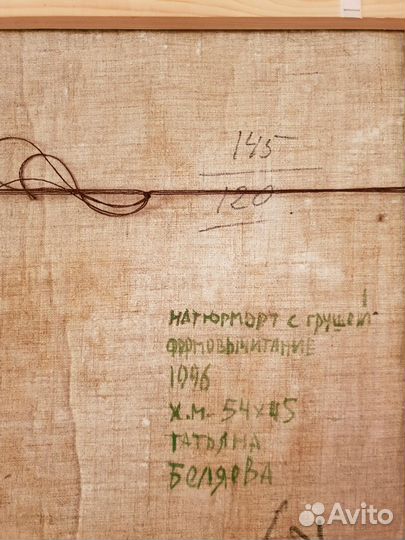 145
120
НАТЮРМОРТ С ГРУШЕЙ
ФОРМОВЫЧИТАНИЕ
1996
Х.М. 54х45
ТАТЬЯНА
БЕЛЯЕВА
Avito